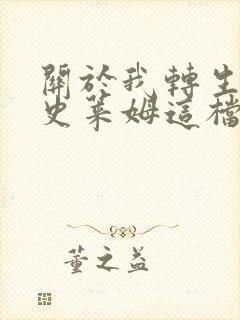 關於我轉生
史萊姆這檔
董之益